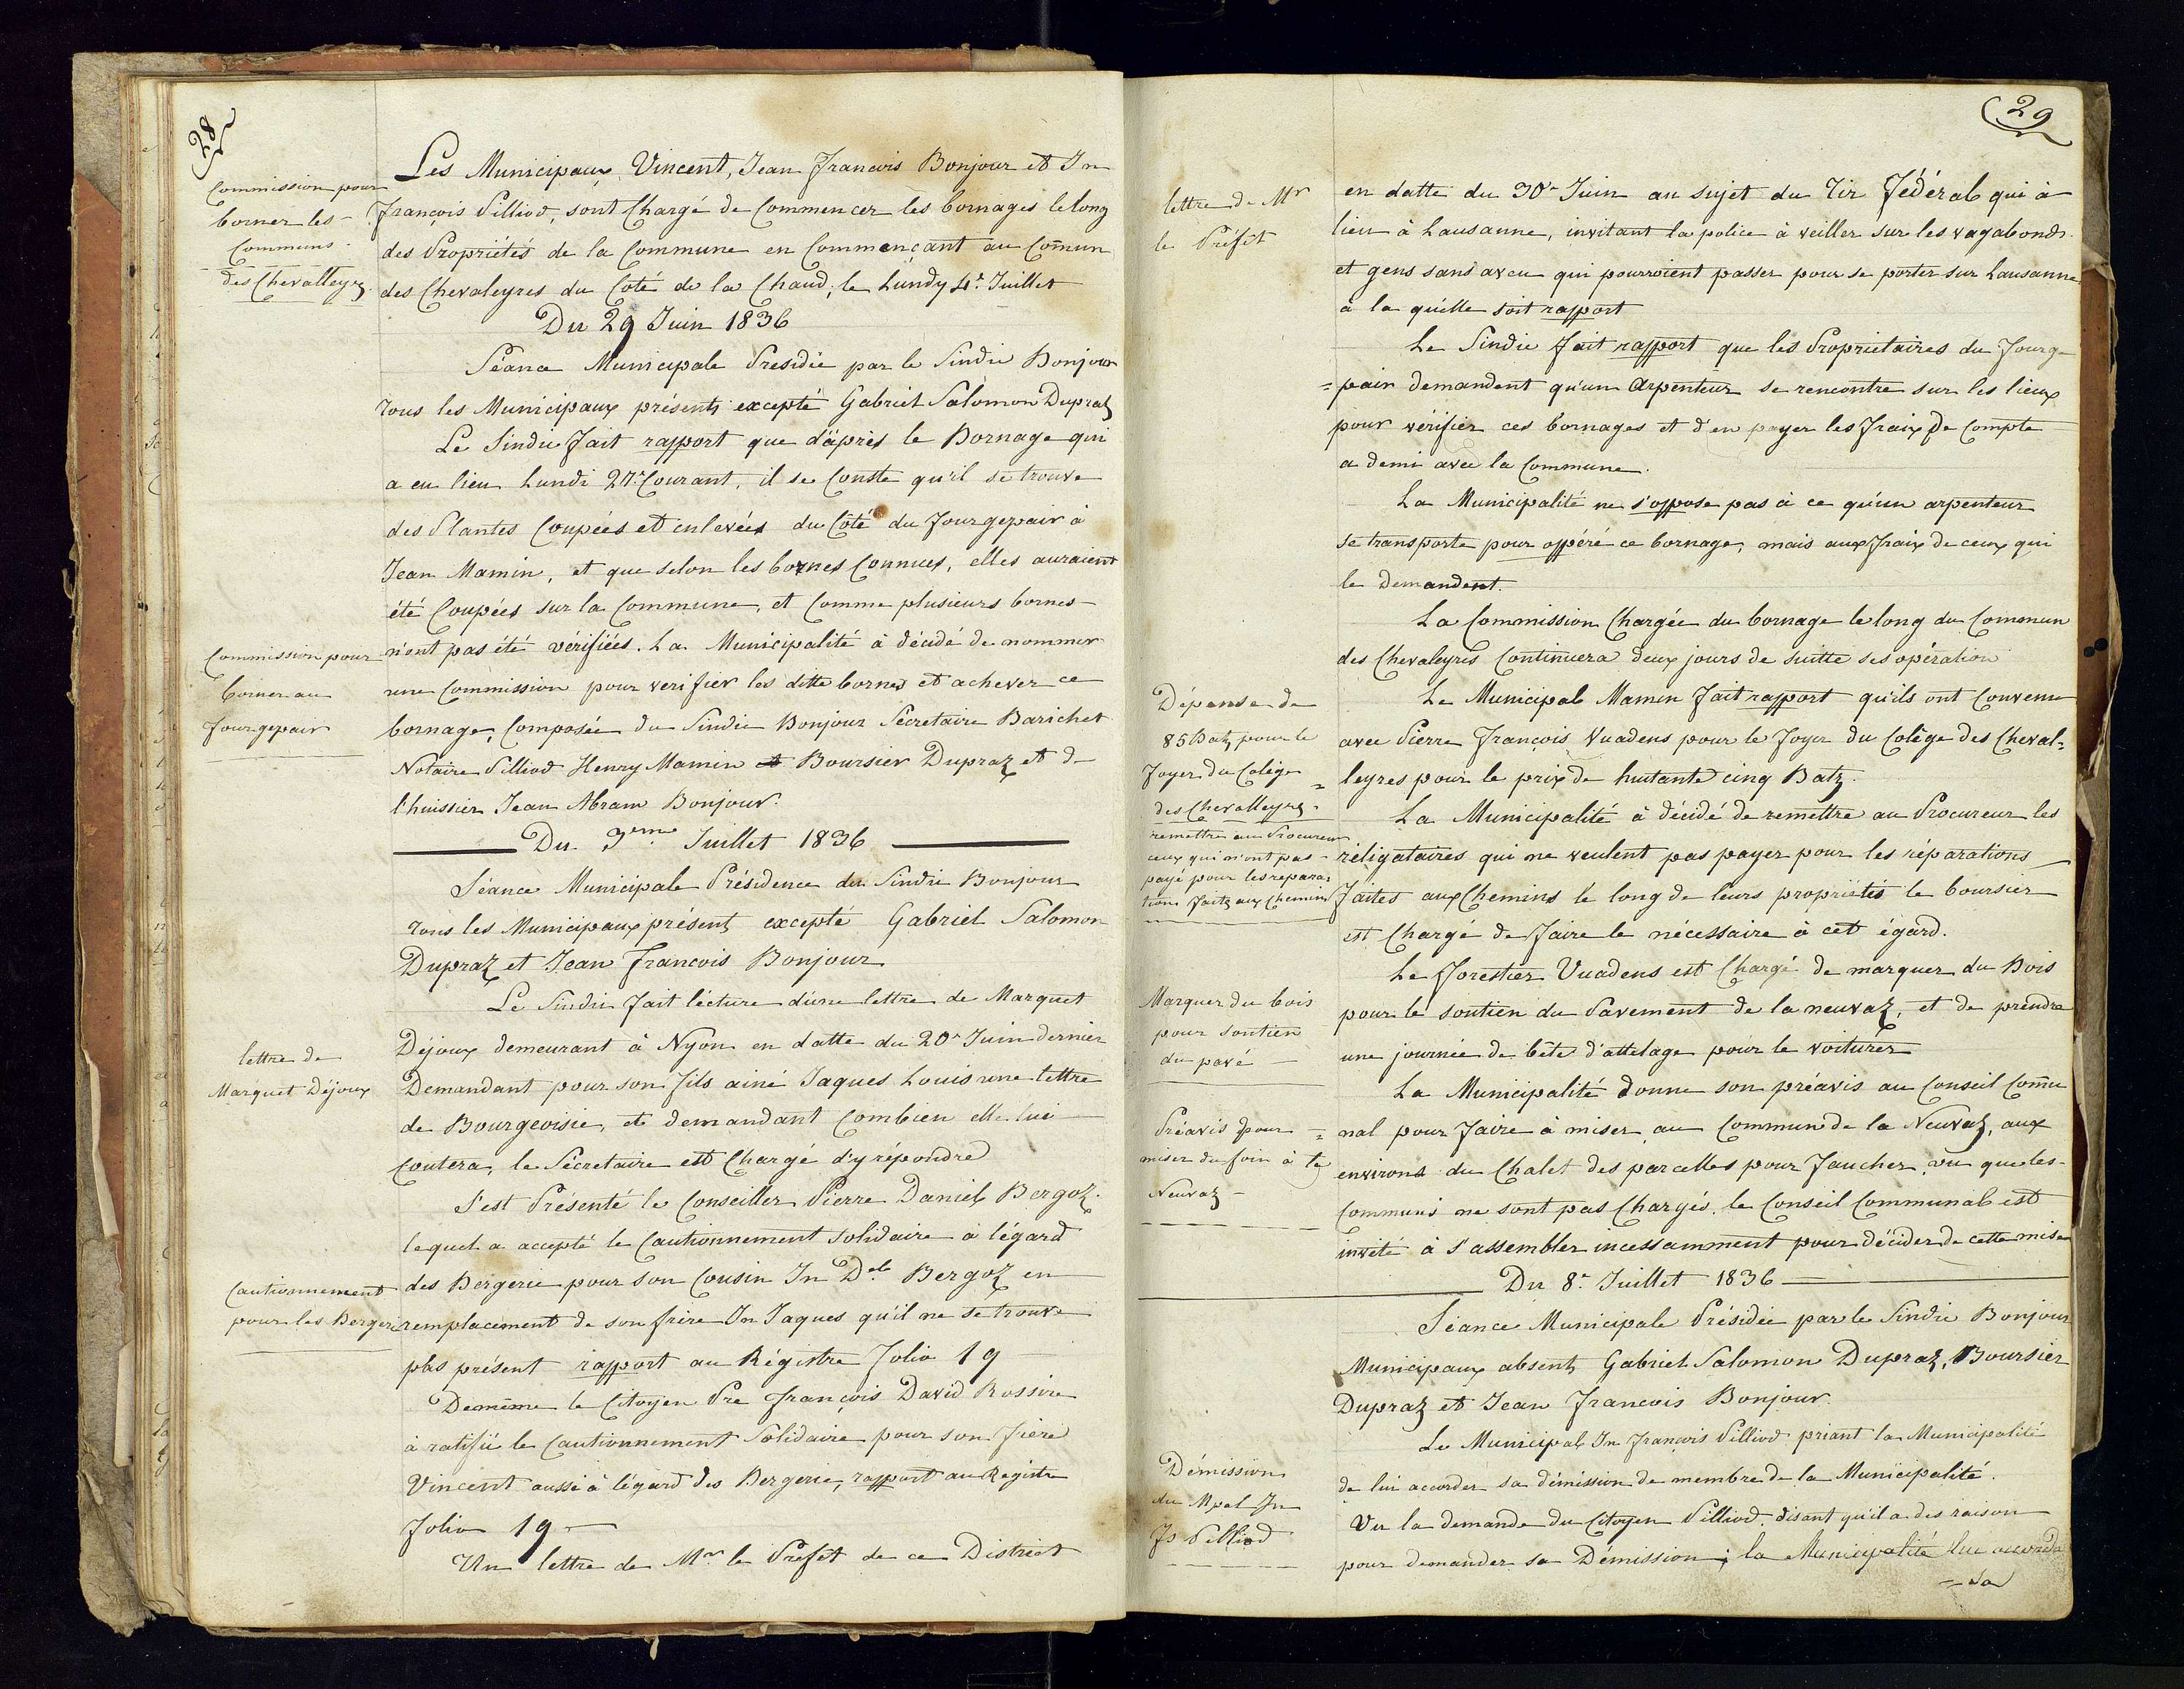 28
Commission pour
borner les
Communs
des Chevalleyrs
Les Municipaux, Vincent, Jean Francois Bonjour et Jn
françois Pilliod, sont Chargé de Commencer les bornages le long
des Propriétés de la Commune en Commençant au Com̄un
des Chevaleyres du Coté de la Chaud, le Lundy 4.e Juillet
Du 29 Juin 1836
Séance Municipale Presidée par le Sindic Bonjour
tous les Municipaux présents excepté Gabriel Salomon Dupraz
Le Sindic fait rapport que d'après le Bornage qui
a eu lieu Lundi 27.e Courant, il se Conste qu'il se trouve
des Plantes Coupées et enlevées du Côté du Fourgepair à
Jean Mamin, et que selon les bornes Connues, elles auraient
été Coupées sur la Commune, et Comme plusieurs bornes
Commission pour
borner au
Fourgepair
n'ont pas été vérifiées. La Municipalité à décidé de nommer
une Commission pour verifier les ditte bornes et achever ce
bornage, Composée du Sindic Bonjour Secretaire Barichet
Notaire Pilliod Henry Mamin et Boursier Dupraz et de
l'huissier Jean Abram Bonjour.
Du 3eme Juillet 1836
Séance Municipale Présidence du Sindic Bonjour
tous les Municipaux présent excepté Gabriel Salomon
Dupraz et Jean Francois Bonjour
Le Sindic fait lécture d'une lettre de Marquet
lettre de
Marquet Déjoux
Déjoux demeurant à Nyon en datte du 20e Juin dernier
Demandant pour son fils ainé Jaques Louis une lettre
de Bourgeoisie, et demandant Combien elle lui
Coutera, le Sécretaire est Chargé d'y répondre
S'est Présenté le Conseiller Pierre Daniel Bergoz.
lequel a accepté le Cautionnement Solidaire a légard
Cautionnement
pour les Bergerie
des Bergerie pour son Cousin Jn Del Bergoz en
remplacement de son frère Jn Jaques qu'il ne se trouve
pas présent rapport au Régistre folio 19
Demême le Citoyen Pre françois David Rossire
à ratifié le Cautionnement Solidaire pour son frère
Vincent aussi à légard des Bergerie, rapport au Registre
folio 19
Un lettre de Mr le Prefet de ce District
29
lettre de Mr
le Préfet
en datte du 30e Juin au sujet du Tir Fédéral qui à
lieu à Lausanne, invitant la police à veiller sur les vagabonds
et gens sans aveu qui pourroient passer pour se porter sur Lausanne
à la quelle soit rapport
Le Sindic fait rapport que les Propriétaires du Fourge
=pair demandent qu'un Arpenteur se rencontre sur les lieux
pour vérifier ces bornages et d'en payer les fraix de Compte
a demi avec la Commune.
La Municipalité ne s'oppose pas à ce qu'un arpenteur
se transporte pour oppéré ce bornage, mais aux fraix de ceux qui
le demandent.
La Commission Chargée du bornage le long du Commun
des Chevaleyres Continuera deux jours de suitte ses opération
Dépense de
85 Batz pour le
foyer du Colège
des Chevalleyres
Le Municipal Mamin fait rapport qu'ils ont Convenu
avec Pierre François Vuadens pour le foyer du Colège des Cheval=
=leyres pour le prix de huitante cinq Batz.
remettre au Procureur
ceux qui n'ont pas
payé pour les repara=
tions faits aux Chemins
La Municipalité à décidé de remettre au Procureur les
réligataires qui ne veulent pas payer pour les réparations
faites aux Chemins le long de leurs propriétés le boursier
est Chargé de faire le nécessaire à cet égard.
Marquer du bois
pour soutien
du pavé
Le forestier Vuadens est Chargé de marquer du Bois
pour le soutien du Pavement de la neuvaz, et de prendre
une journée de bête d'attelage pour le voiturer
La Municipalité donne son préavis au Conseil Com̄u
Préavis pour
miser du foin à la
Neuvaz
=nal pour faire à miser au Commun de la Neuvaz, aux
environs du Chalet des parcelles pour faucher, vu que les
Communs ne sont pas Chargés. le Conseil Communal est
invité à s'assembler incessamment pour décider de cette mise
Du 8.e Juillet 1836
Séance Municipale Présidée par le Sindic Bonjour
Municipaux absents Gabriel Salomon Dupraz, Boursier
Dupraz et Jean Francois Bonjour.
Démission
du Mpal Jn
Fs Pilliod
Le Municipal Jn François Pilliod priant la Municipalité
de lui accorder sa démission de membre de la Municipalité.
Vu la demande du Citoyen Pilliod, disant qu'il a des raison
pour demander sa Démission; la Municipalité lui accorde
=sa